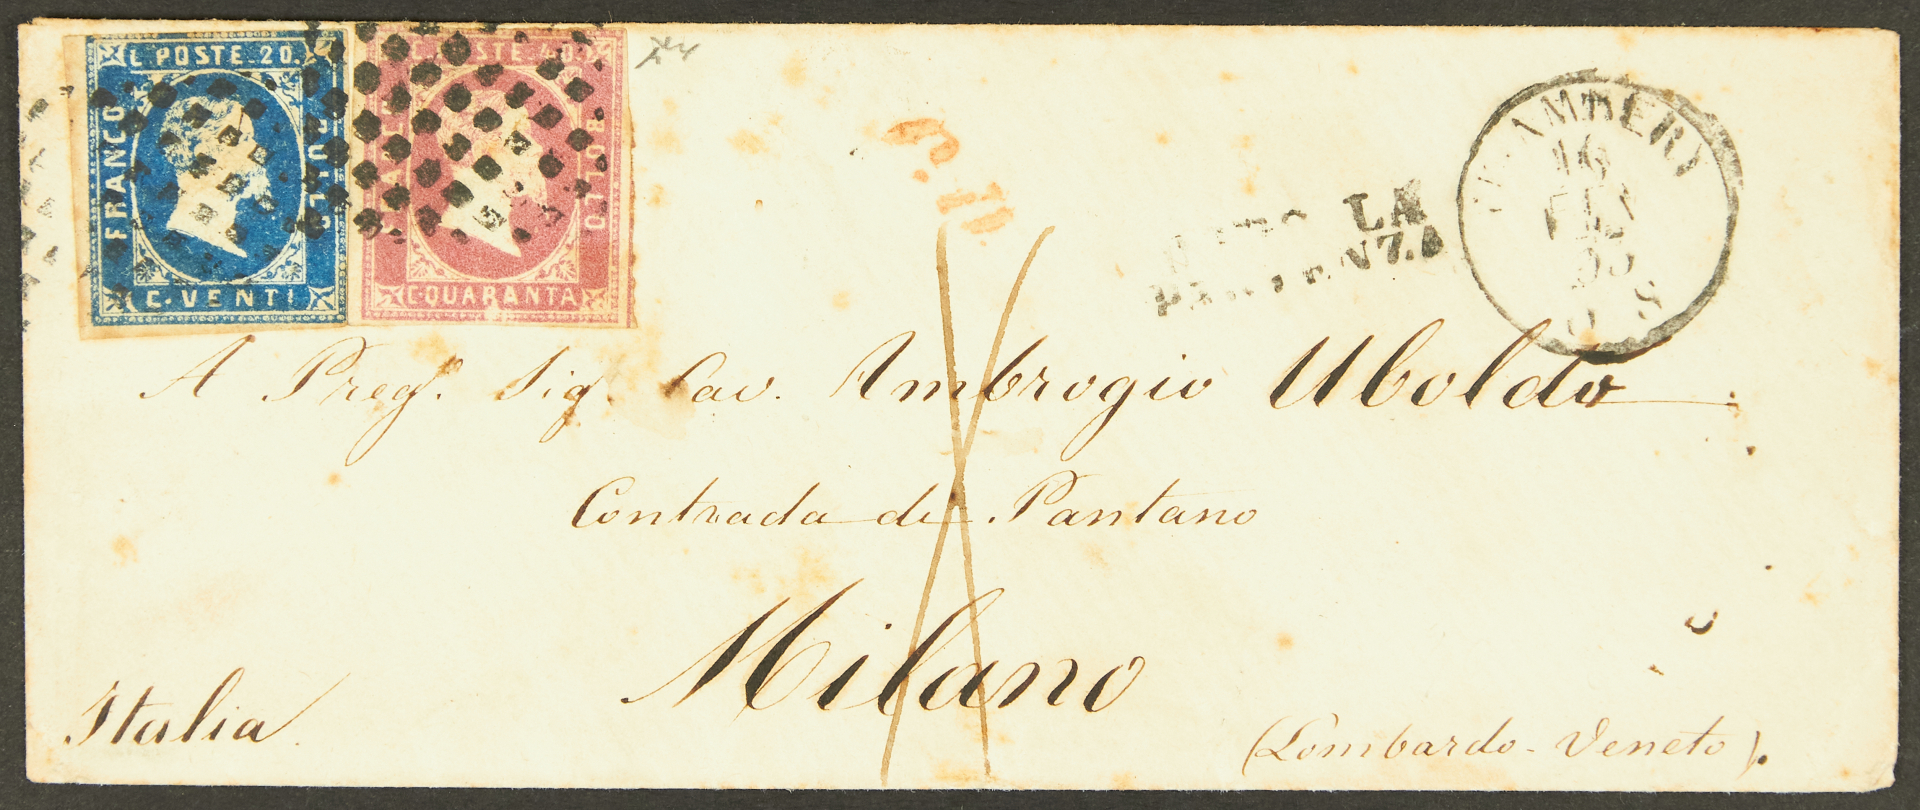 C. POSTE. 20.
FRANCO
BOLLO
C. VENTI
C. POSTE. 40.
BOLLO
C. QUARANTA
P. D.
LA
PARTENZA
CHAMBERY
16
FEB
55
S
A Preg. Sig. Cav. Ambrogio Uboldo
Contrada de Pantano
Milano
Italia
(Lombardo-Veneto).